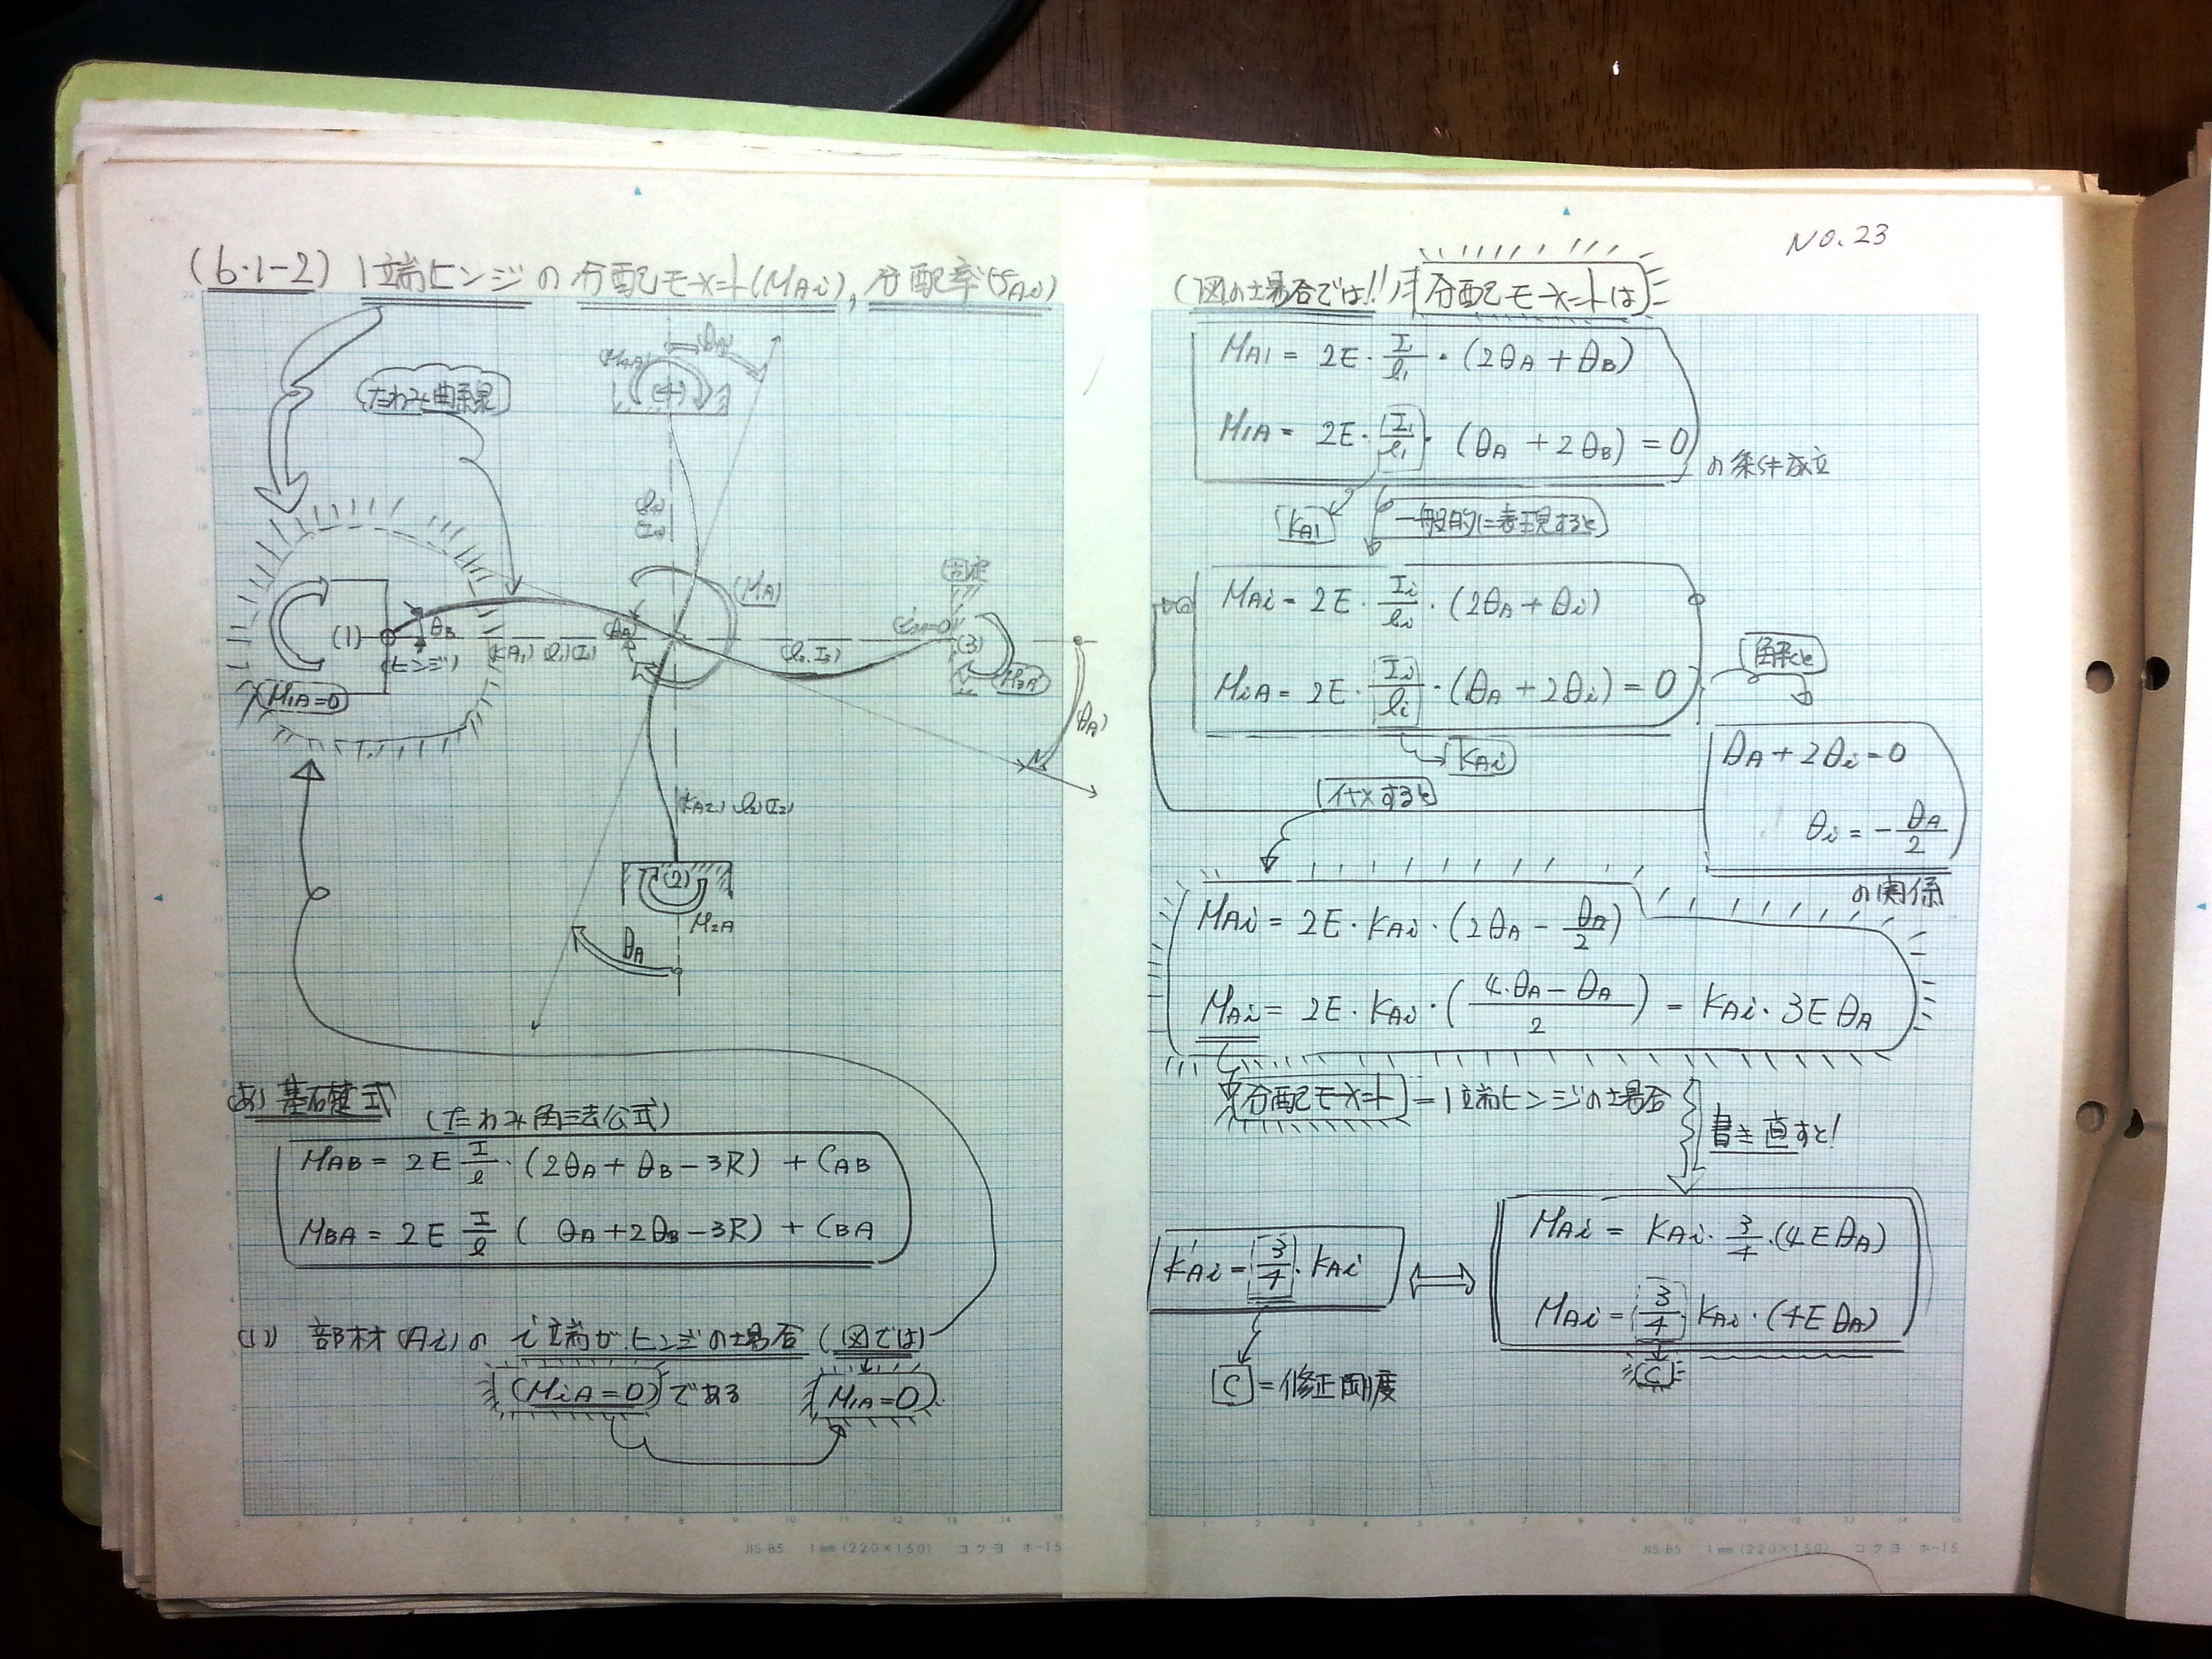 (6・1-2) 1端ヒンジの分配モーメント(MAi), 分配率(δAi)
たわみ曲線
θA
(4)
固定
(MiA)
(1)
θB
(ヒンジ)
(KA1) l1(I1)
(3)
M3A
M1A=0
(θA)
(KA2) l2(I2)
(2)
M2A
θA
(あ) 基礎式
(たわみ角法公式)
MAB = 2E I/l・(2θA + θB - 3R) + CAB
MBA = 2E I/l ( θA + 2θB - 3R) + CBA
(1) 部材(Ai)の i端がヒンジの場合 (図では)
(MiA=0)である
(M1A=0)
JIS-B5 1mm(220×150) コクヨ ホ-15
NO.23
(図の場合では!!) 分配モーメントは
MA1 = 2E・I/l1・(2θA + θB)
M1A = 2E・I1/l1・(θA + 2θB) = 0
の条件成立
KA1
一般的に表現すると
MAi = 2E・Ii/li・(2θA + θi)
MiA = 2E・Ii/li・(θA + 2θi) = 0
解くと
KAi
θA + 2θi = 0
θi = -θA/2
の関係
代入すると
MAi = 2E・KAi・(2θA - θA/2)
MAi = 2E・KAi・(4・θA - θA/2) = KAi・3EθA
分配モーメント - 1端ヒンジの場合
書き直すと!
MAi = KAi・3/4・(4EθA)
MAi = 3/4 KAi・(4EθA)
C
K'Ai = 3/4・KAi
C = 修正剛度
JIS-B5 1mm(220×150) コクヨ ホ-15